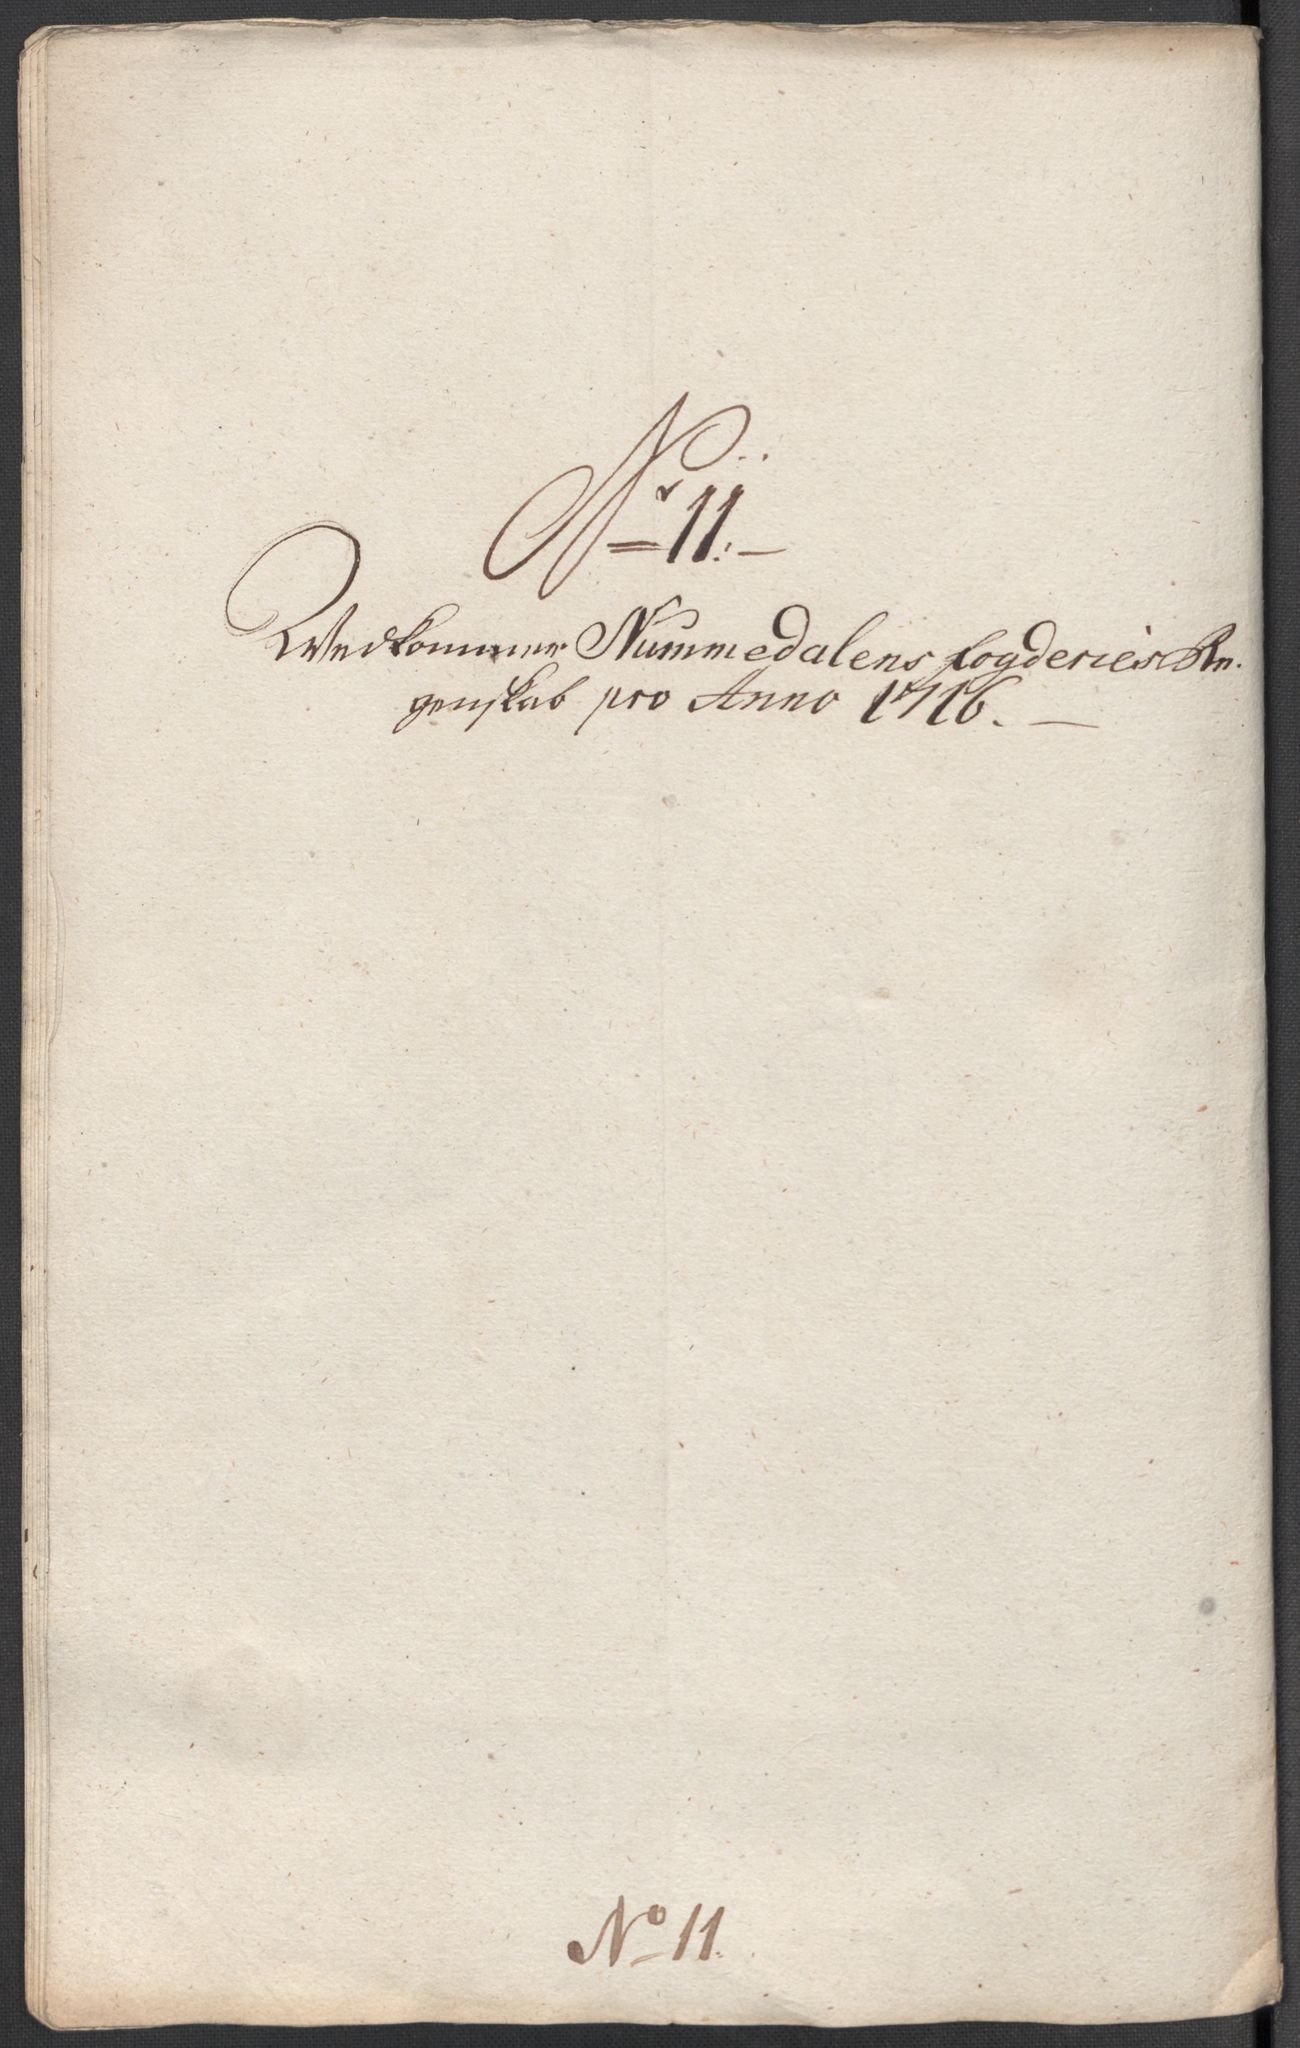 Nr 11.
Wedkommer Nummedalens fogderies Re-
genskab pro Anno 1716.
No 11.